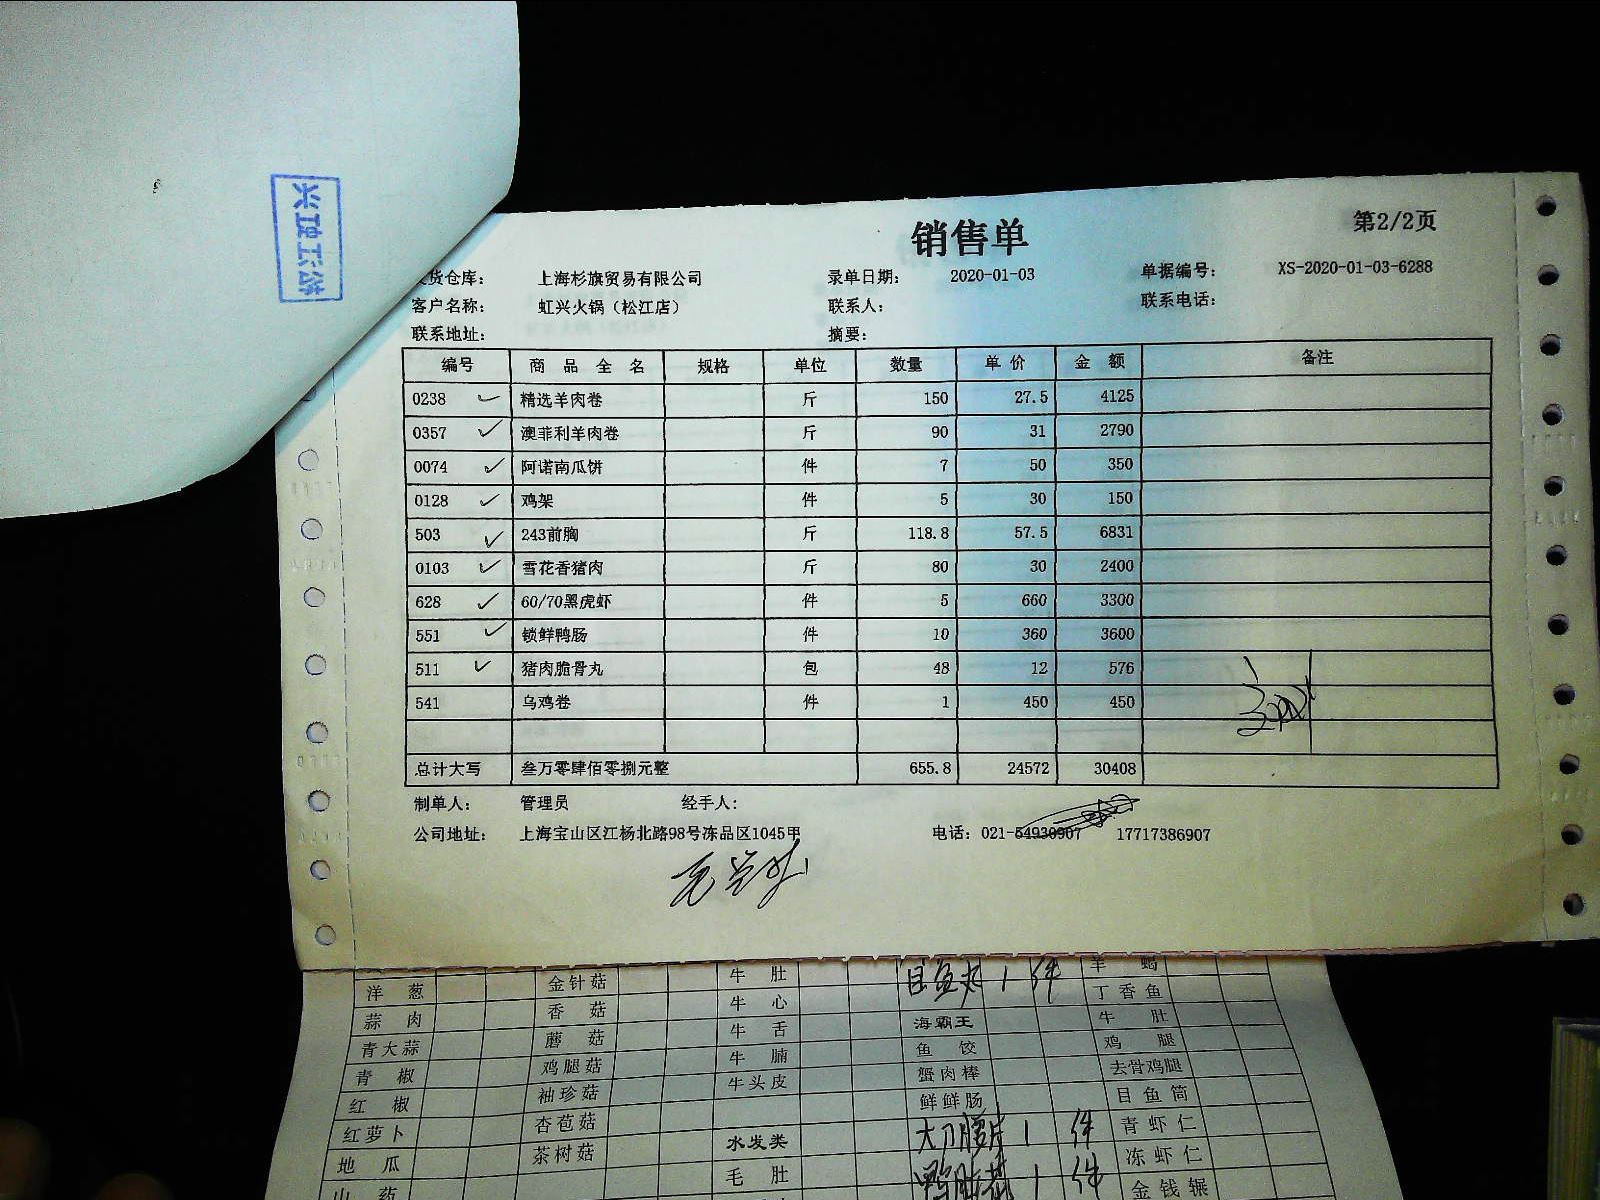 销售单
第2/2页
货仓库： 上海杉旗贸易有限公司 录单日期： 2020-01-03 单据编号： XS-2020-01-03-6288
客户名称： 虹兴火锅（松江店） 联系人： 联系电话：
联系地址： 摘要：
编号 商品全名 规格 单位 数量 单价 金额 备注
0238 精选羊肉卷 斤 150 27.5 4125
0357 澳菲利羊肉卷 斤 90 31 2790
0074 阿诺南瓜饼 件 7 50 350
0128 鸡架 件 5 30 150
503 243前胸 斤 118.8 57.5 6831
0103 雪花香猪肉 斤 80 30 2400
628 60/70黑虎虾 件 5 660 3300
551 锁鲜鸭肠 件 10 360 3600
511 猪肉脆骨丸 包 48 12 576
541 乌鸡卷 件 1 450 450
总计大写 叁万零肆佰零捌元整 655.8 24572 30408
制单人： 管理员 经手人：
公司地址： 上海宝山区江杨北路98号冻品区1045甲 电话：021-54930907 17717386907
洋葱 金针菇 牛肚 目鱼丸 1 件 羊蝎
蒜肉 香菇 牛心 丁香鱼
青大蒜 蘑菇 牛舌 海霸王 牛肚
青椒 鸡腿菇 牛腩 鱼饺 鸡腿
红椒 袖珍菇 牛头皮 蟹肉棒 去骨鸡腿
红萝卜 杏苞菇 鲜鲜肠 目鱼筒
地瓜 茶树菇 水发类 大刀腰片 1 件 青虾仁
山药 毛肚 1 件 冻虾仁
金钱辗